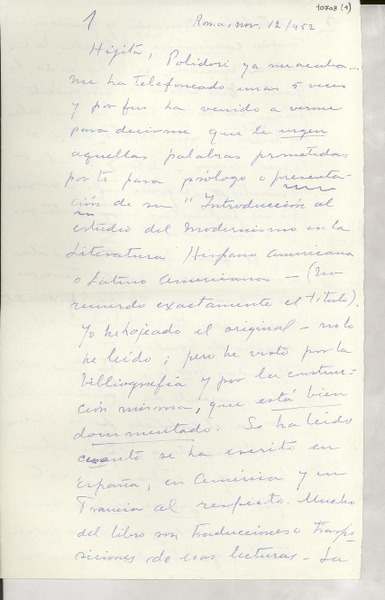 10703 (1)
1
Roma, nov. 12/952
Hijita, Polidori ya me acaba...
me ha telefoneado unas 5 veces
y por fin ha venido a verme
para decirme que le urgen
aquellas palabras prometidas
por ti para prólogo o presenta-
ción de su "Introducción al
estudio del Modernismo en la
Literatura Hispano Americana
o Latino Americana — (No
recuerdo exactamente el título).
Yo he hojeado el original — no lo
he leído; pero he visto por la
bibliografía y por la construc-
ción misma, que está bien
documentado. Se ha leído
cuanto se ha escrito en
España, en América y en
Francia al respecto. Mucho
del libro son traducciones o transpo-
siciones de esas lecturas — La